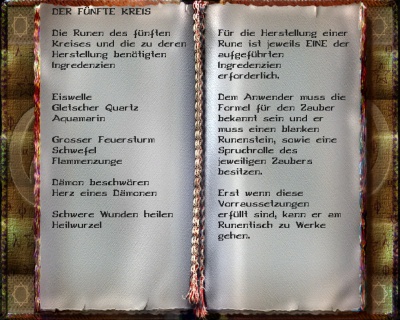 DER FÜNFTE KREIS
Die Runen des fünften
Kreises und die zu deren
Herstellung benötigten
Ingredenzien
Eiswelle
Gletscher Quartz
Aquamarin
Grosser Feuersturm
Schwefel
Flammenzunge
Dämon beschwören
Herz eines Dämonen
Schwere Wunden heilen
Heilwurzel
Für die Herstellung einer
Rune ist jeweils EINE der
aufgeführten
Ingredenzien
erforderlich.
Dem Anwender muss die
Formel für den Zauber
bekannt sein und er
muss einen blanken
Runenstein, sowie eine
Spruchrolle des
jeweiligen Zaubers
besitzen.
Erst wenn diese
Vorraussetzungen
erfüllt sind, kann er am
Runentisch zu Werke
gehen.